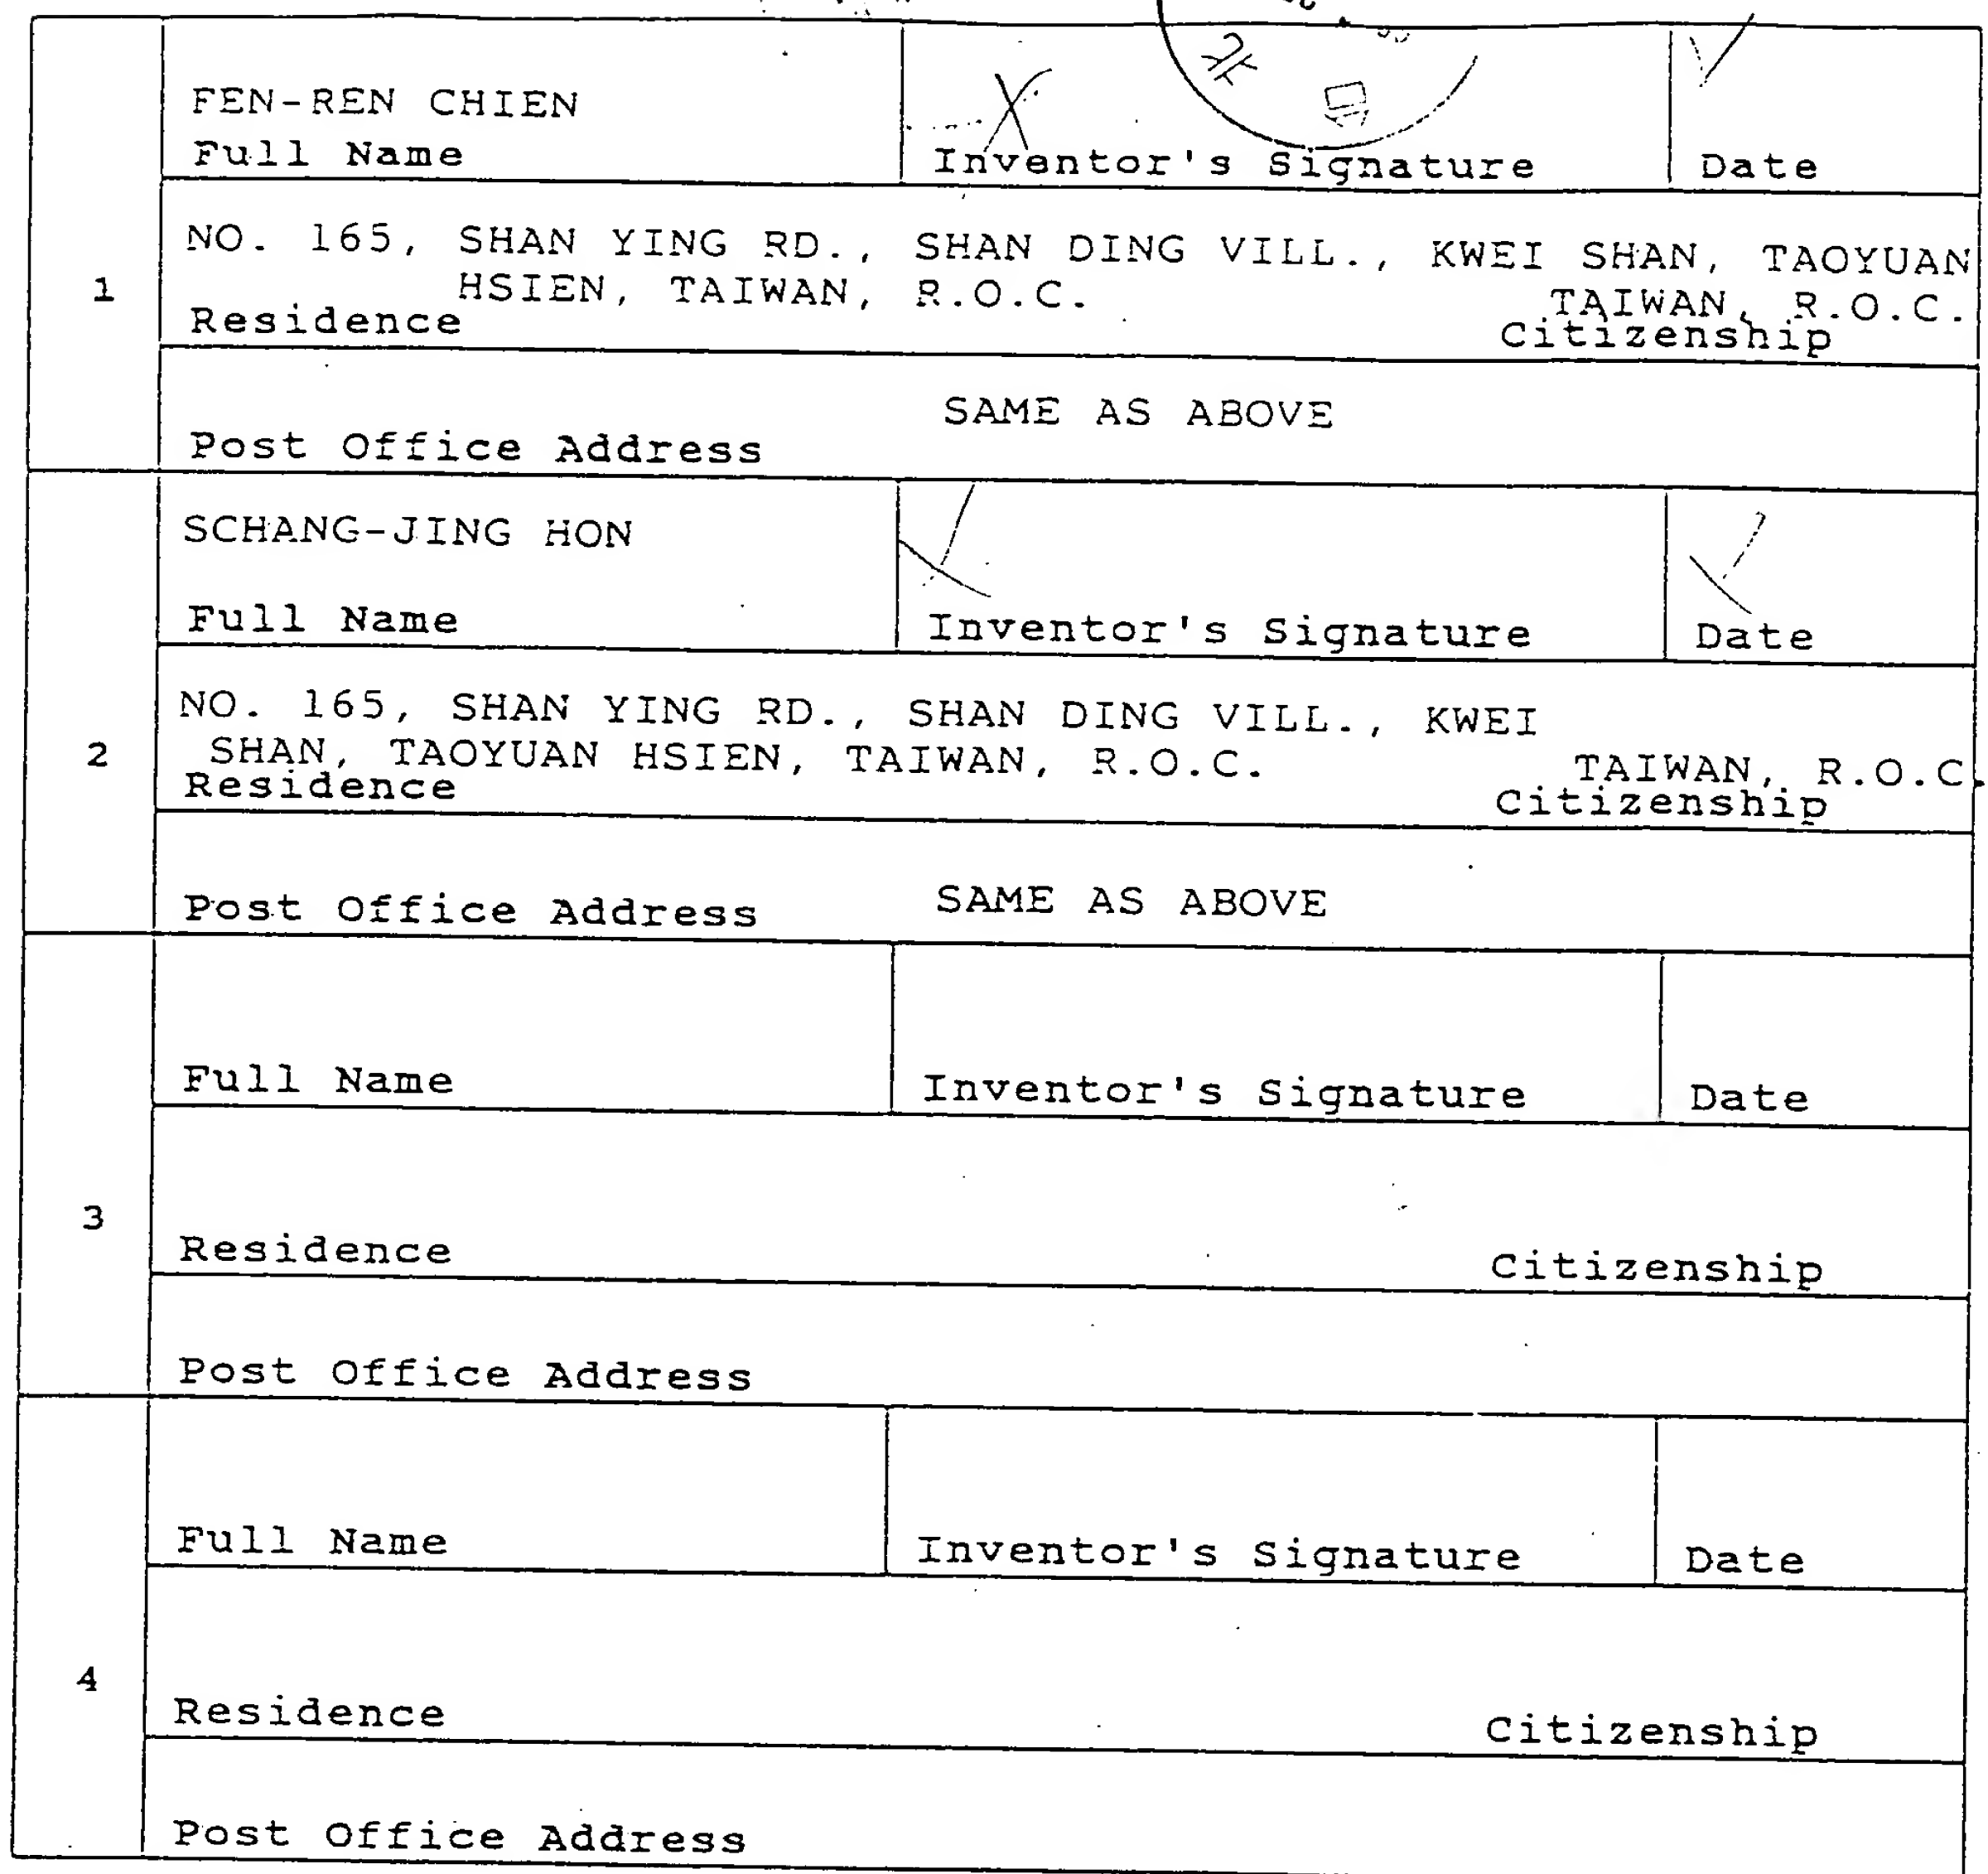 FEN-REN CHIEN
Full Name
Inventor's Signature
Date
1
NO. 165, SHAN YING RD., SHAN DING VILL., KWEI SHAN, TAOYUAN
HSIEN, TAIWAN, R.O.C.
TAIWAN, R.O.C.
Residence
Citizenship
SAME AS ABOVE
Post Office Address
SCHANG-JING HON
Full Name
Inventor's Signature
Date
2
NO. 165, SHAN YING RD., SHAN DING VILL., KWEI
SHAN, TAOYUAN HSIEN, TAIWAN, R.O.C.
TAIWAN, R.O.C.
Residence
Citizenship
Post Office Address
SAME AS ABOVE
Full Name
Inventor's Signature
Date
3
Residence
Citizenship
Post Office Address
Full Name
Inventor's Signature
Date
4
Residence
Citizenship
Post Office Address